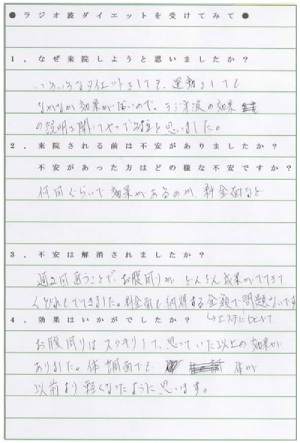 ●ラジオ波ダイエットを受けてみて●
1．なぜ来院しようと思いましたか？
いろいろなダイエットをしても、運動をしても
なかなか効果がないので、ラジオ波の効果
の説明を聞いてやってみようと思いました。
2．来院される前は不安がありましたか？
不安があった方はどの様な不安ですか？
何回ぐらいで効果があるのか 料金面など
3．不安は解消されましたか？
週2回通うことでお腹周りが どんどん成果がでてきて
くびれもでてきました。料金面も納得する金額で問題ないです
4．効果はいかがでしたか？
ウエストにくびれて
お腹周りはスッキリして、思っていた以上の効果が
ありました。体調面でも 体が
以前より軽くなったように思います。